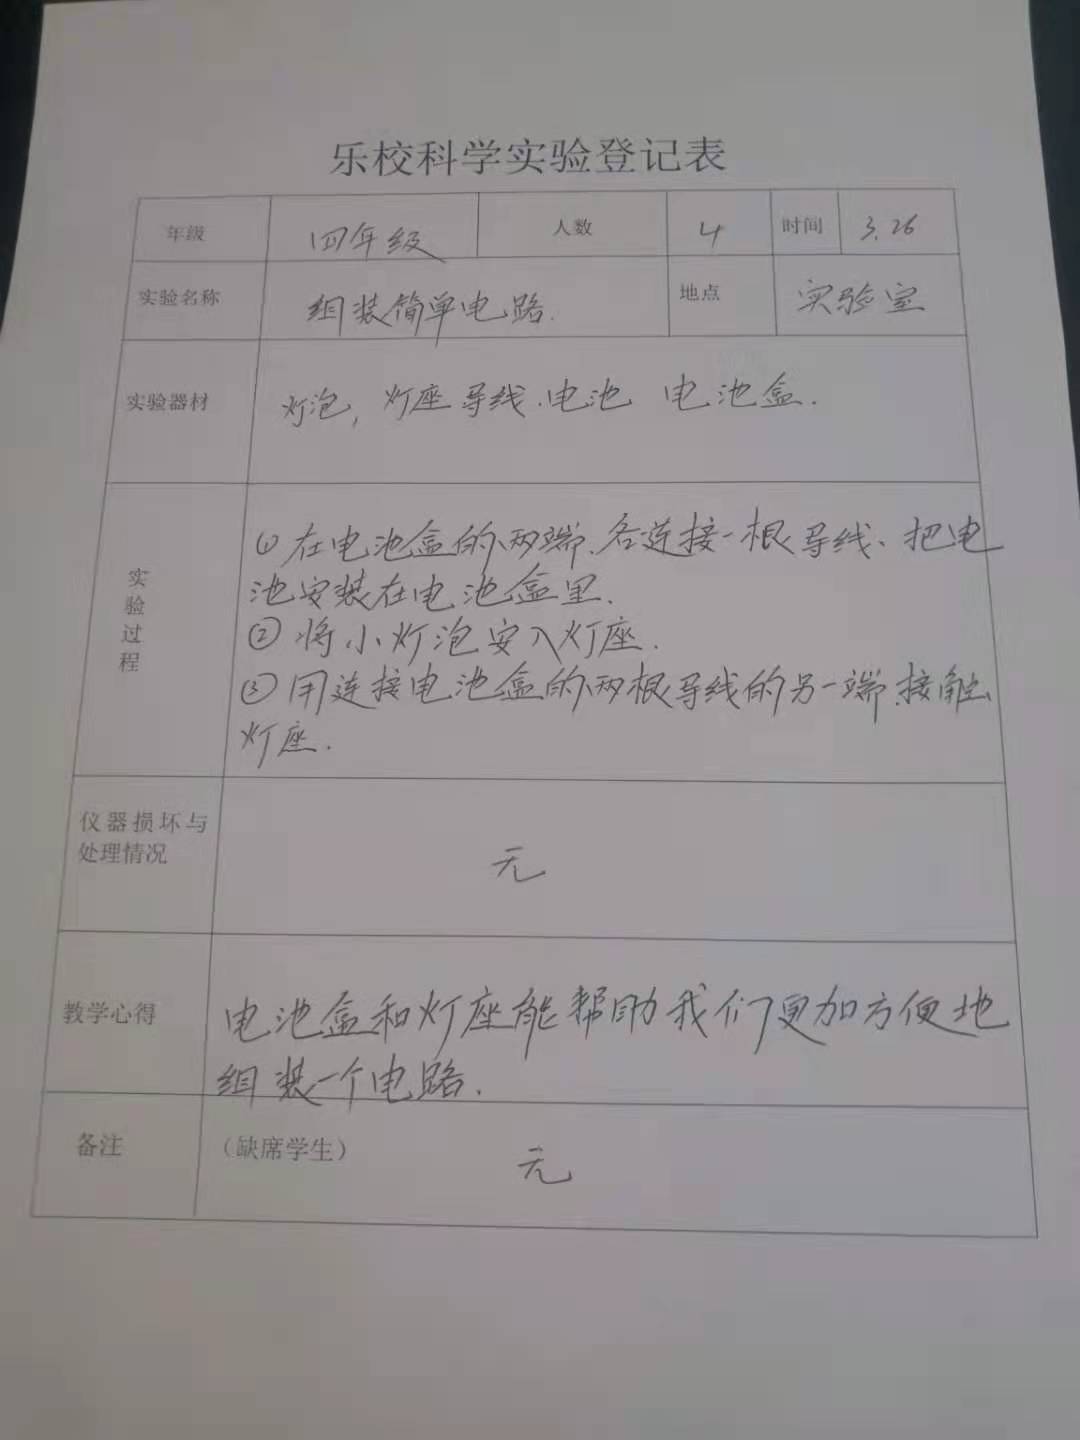 乐校科学实验登记表
年级 四年级 人数 4 时间 3.26
实验名称 组装简单电路. 地点 实验室
实验器材 灯泡, 灯座 导线、电池 电池盒.
实验过程
①在电池盒的两端、各连接一根导线、把电
池安装在电池盒里.
②将小灯泡安入灯座.
③用连接电池盒的两根导线的另一端、接触
灯座.
仪器损坏与
处理情况
无
教学心得
电池盒和灯座能帮助我们更加方便地
组装一个电路.
备注 (缺席学生) 无